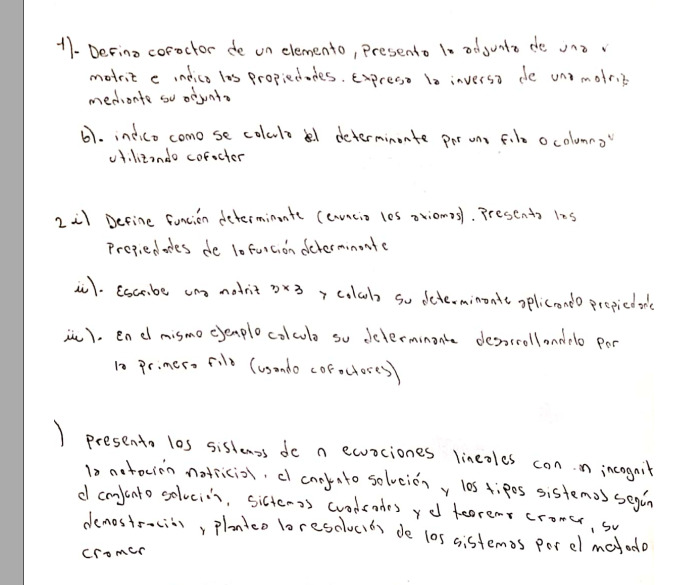 1)- Defina cofactor de un elemento, Presenta la adjunta de una
matriz e indica las propiedades. Expresa la inversa de una matriz
mediante su adjunta
b). indica como se calcula el determinante por una fila o columna
utilizando cofactor
2 i) Define función determinante (enuncia los axiomas). Presenta las
Propiedades de la función determinante
ii). Escribe una matriz 3x3 y calcula su determinante aplicando propiedade
iii). en el mismo ejemplo calcula su determinante desarrollandolo por
la primera fila (usando cofactores)
) Presenta los sistemas de n ecuaciones lineales con n incognit
la notación matricial. el conjunto solución y los tipos sistemas según
el conjunto solución, sistemas cuadrados y el teorema cramer, su
demostración, plantea la resolución de los sistemas por el metodo
cramer